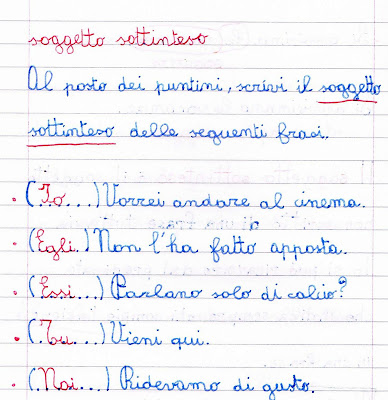 soggetto sottinteso
Al posto dei puntini, scrivi il soggetto
sottinteso delle seguenti frasi.
• (Io...) Vorrei andare al cinema.
• (Egli.) Non l'ha fatto apposta.
• (Essi...) Parlano solo di calcio?
• (.Tu...) Vieni qui.
• (.Noi...) Ridevamo di gusto.